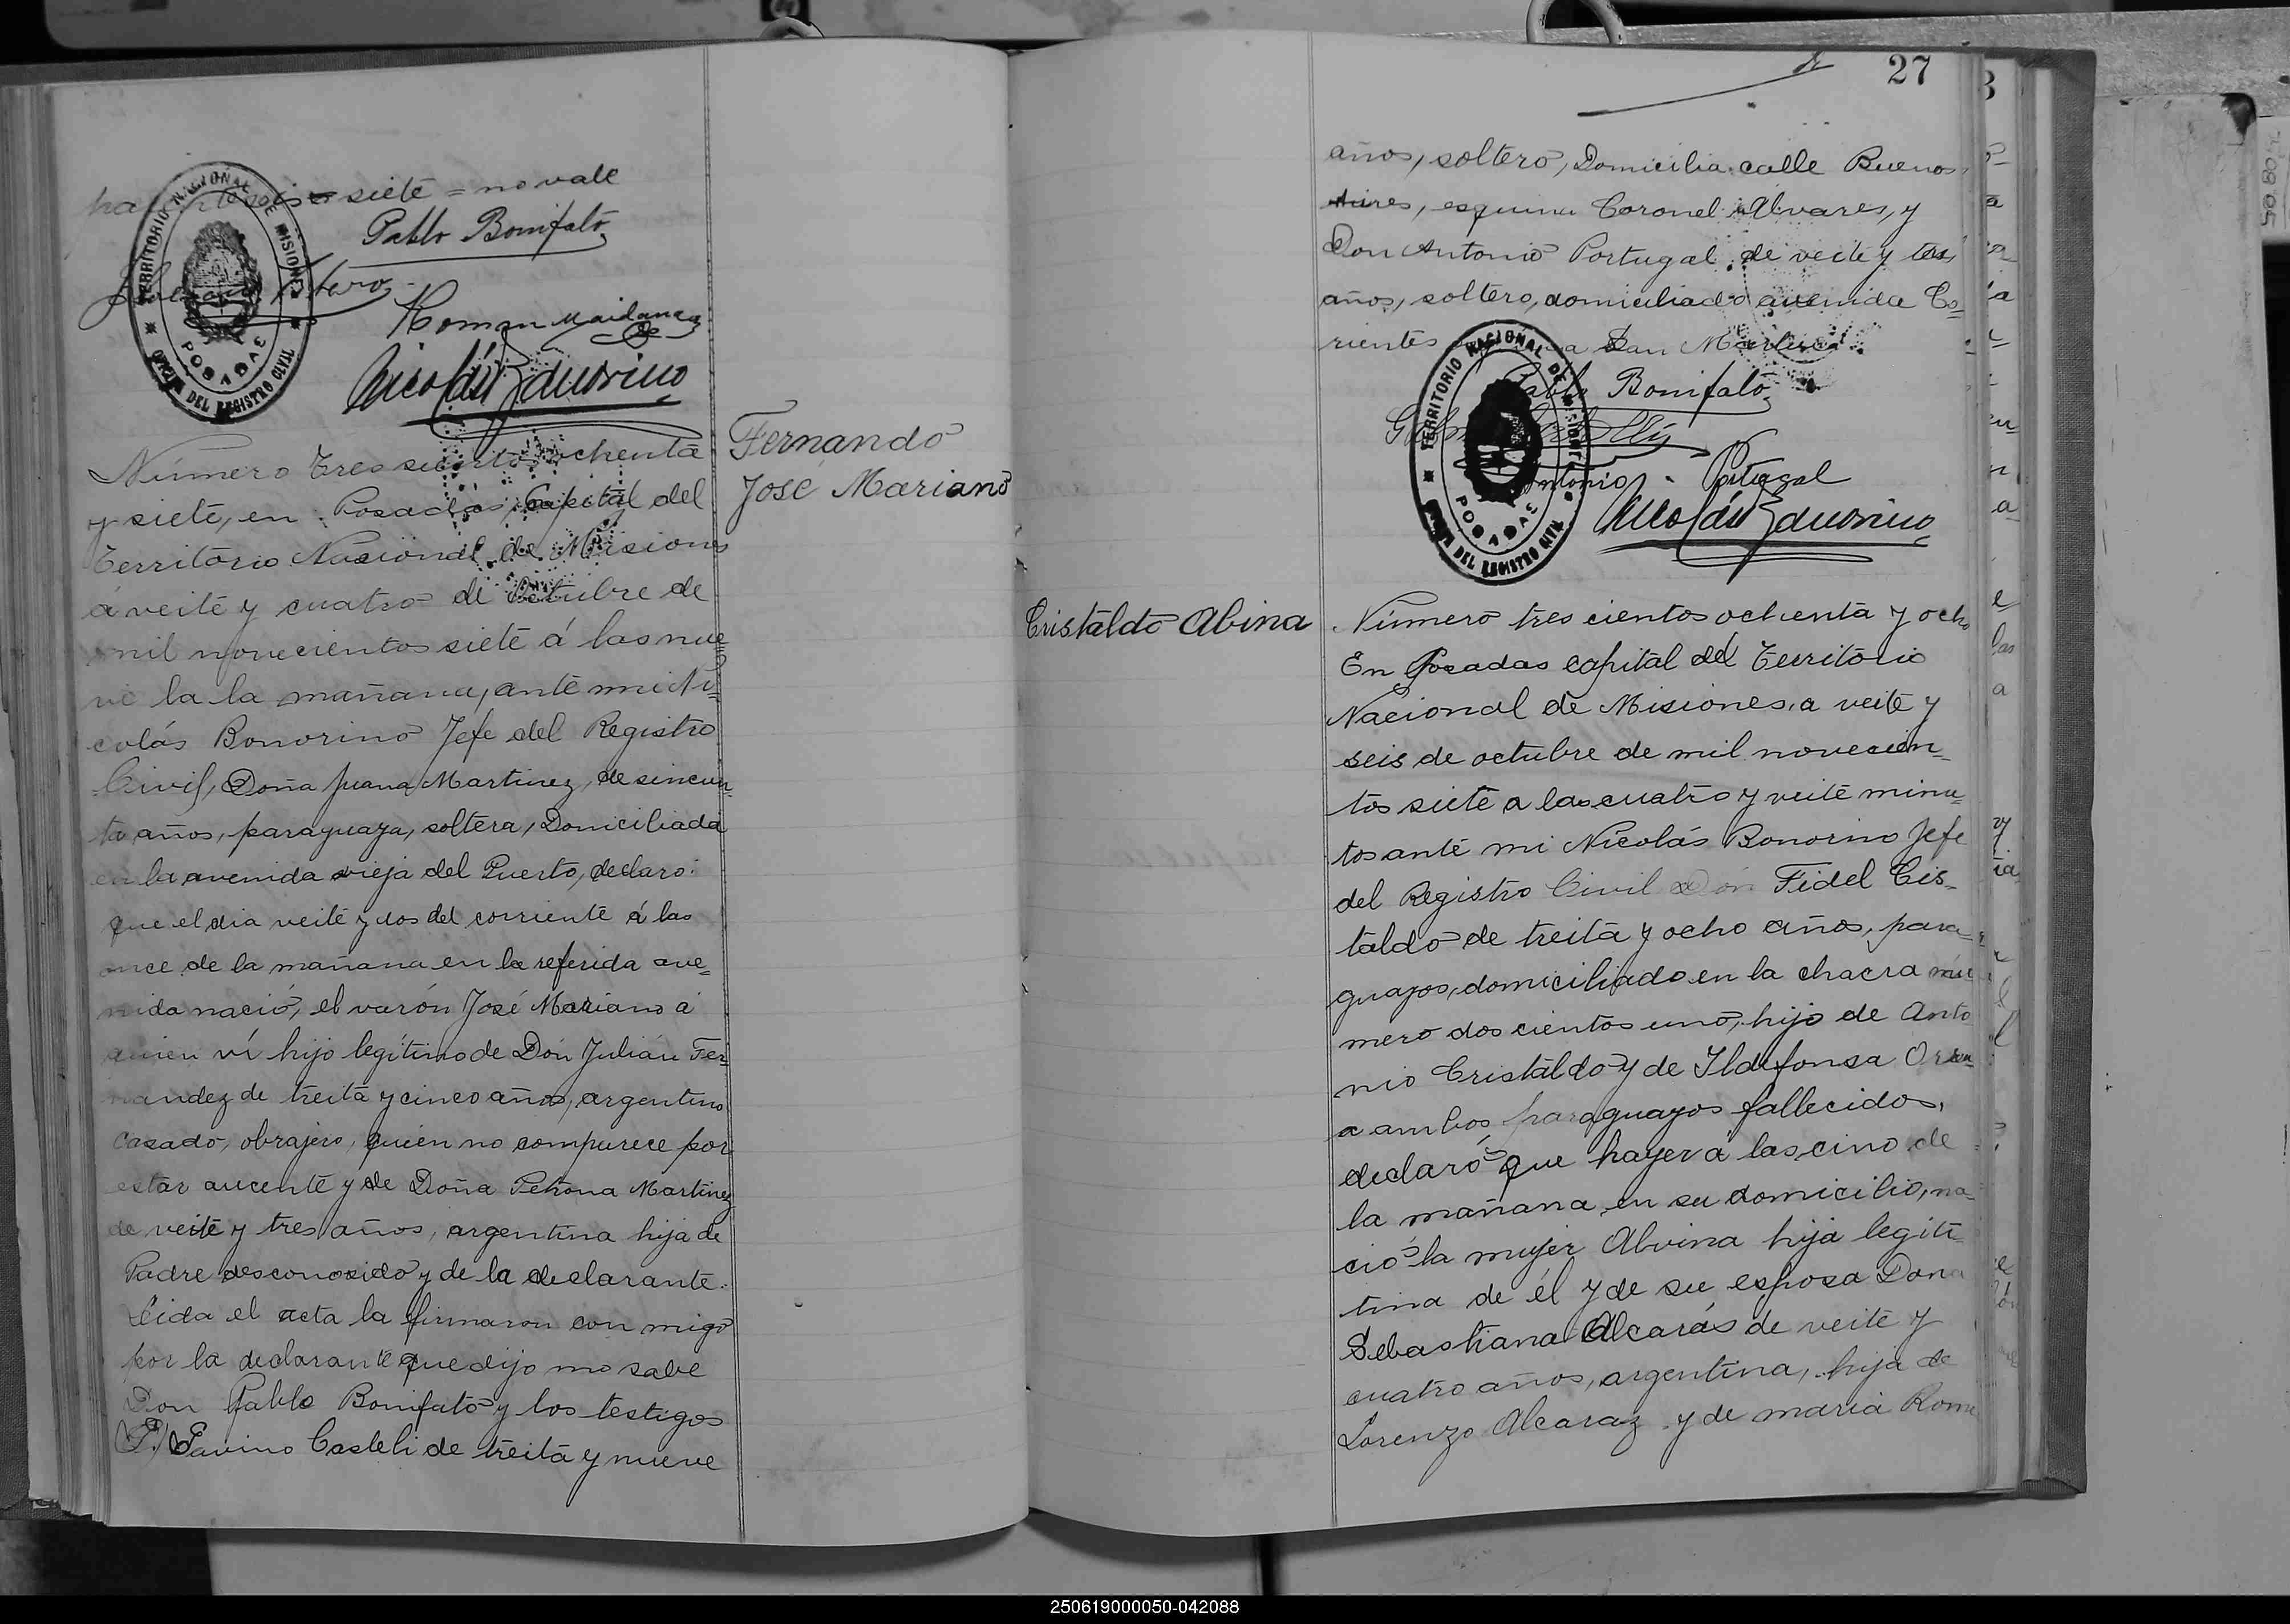 siete = no vale
Pablo Bonifato
Roman Maidana
Nicolás Bonorino
TERRITORIO NACIONAL DE MISIONES
POSADAS
OFICINA DEL REGISTRO CIVIL
Fernando
José Mariano
Número Tres sientos ochenta
y siete, en Posadas, Capital del
Territorio Nacional de Misiones
á veite y cuatro de Octubre de
mil novecientos siete á las nue=
ve la la mañana, ante mi Ni=
colás Bonorino Jefe del Registro
Civil, Doña Juana Martinez, de sincuen=
ta años, paraguaya, soltera, Domiciliada
en la avenida vieja del Puerto, declaro:
que el dia veite y dos del corriente á las
once de la mañana en la referida ave=
nida nació, el varón José Mariano á
quien ví hijo legítimo de Don Julián Fer=
nandez de treita y cinco años, argentino
casado, obrajero, quien no compurece por
estar aucente y de Doña Petrona Martinez
de veite y tres años, argentina hija de
Padre desconosido y de la declarante.
Leida el acta la firmaron con migo
por la declarante que dijo no sabe
Don Pablo Bonifato y los testigos
Gavino Casteli de treita y nueve
27
años, soltero, Domicilia calle Buenos
Aires, esquina Coronel Alvares, y
Don Antonio Portugal de veite y tres
años, soltero, domiciliado avenida Co=
rientes San Martin
Pablo Bonifato
Antonio Portugal
Nicolás Bonorino
TERRITORIO NACIONAL DE MISIONES
POSADAS
OFICINA DEL REGISTRO CIVIL
Cristaldo Albina
Número tres cientos ochenta y ocho
En Posadas capital del Territorio
Nacional de Misiones, a veite y
seis de octubre de mil novecien=
tos siete a las cuatro y veite minu=
tos ante mi Nicolás Bonorino Jefe
del Registro Civil Don Fidel Cis=
taldo de treita y ocho años, para=
guayos, domiciliado en la chacra nu
mero dos cientos uno, hijo de Anto
nio Cristaldo y de Ildefonsa
a ambos paraguayos fallecidos,
declaró que hayer á las cino de
la mañana, en su domicilio, na=
ció la mujer Alvina hija legiti=
tina de él y de su esposa Dona
Sebastiana Alcarás de veite y
cuatro años, argentina, hija de
Lorenzo Alcaraz y de maria Rome
250619000050-042088